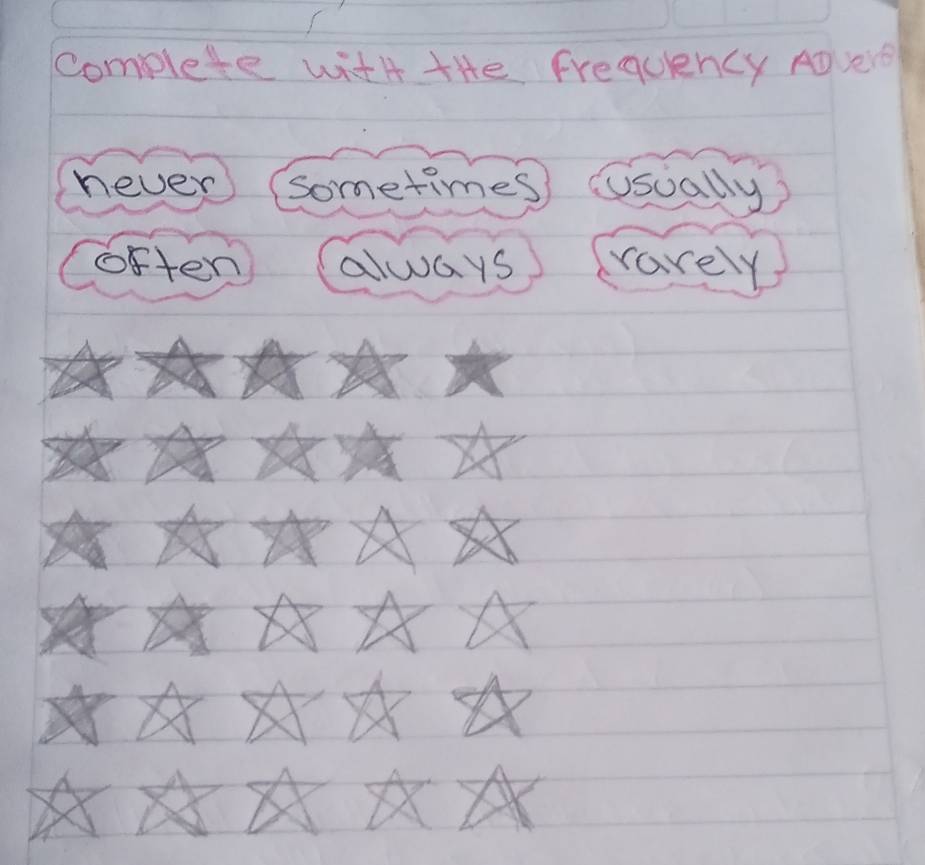 Complete with the frequency Adverb
never sometimes usually
often always rarely